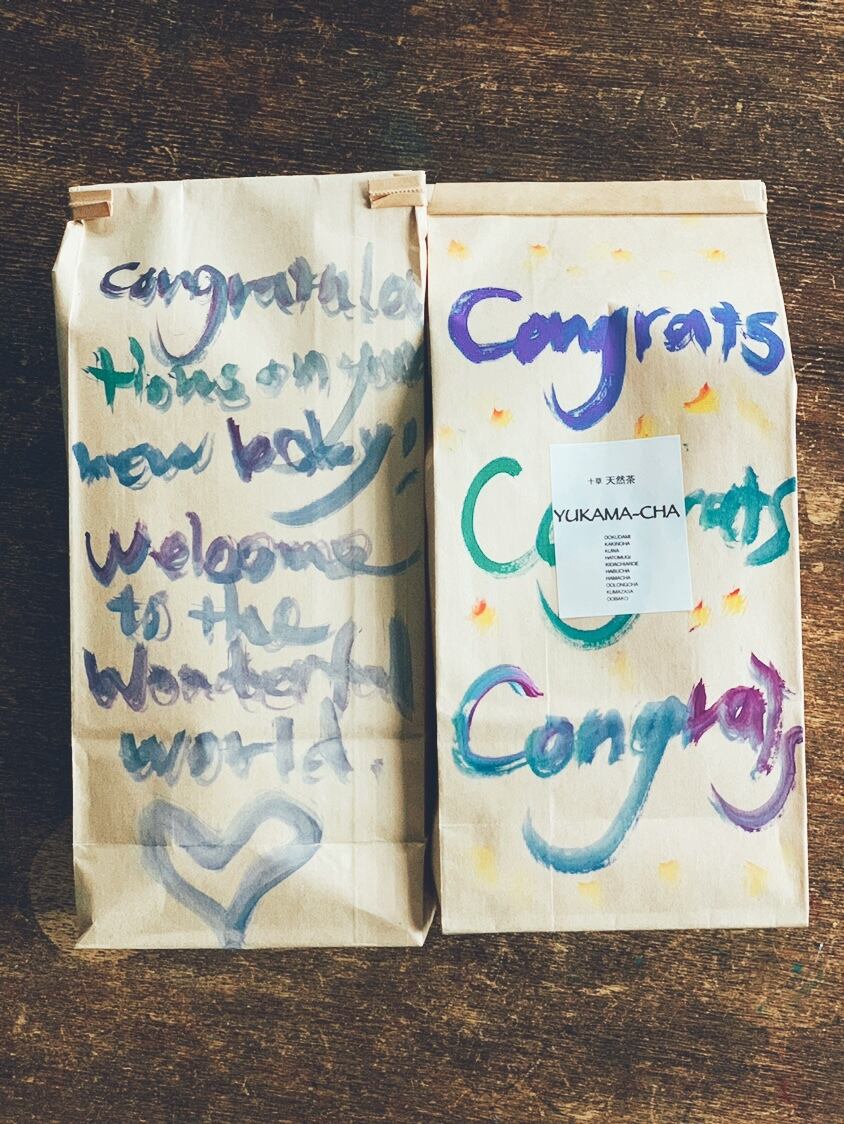 Congratula
tions on your
new baby!
Welcome
to the
Wonderful
World.
Congrats
Congrats
十草 天然茶
YUKAMA-CHA
DOKUDAMI
KAKINOHA
KUWA
HATOMUGI
KIDACHIAROE
HABUCHA
HAMACHA
OOLONGCHA
KUMAZASA
OOBAKO
Congrats